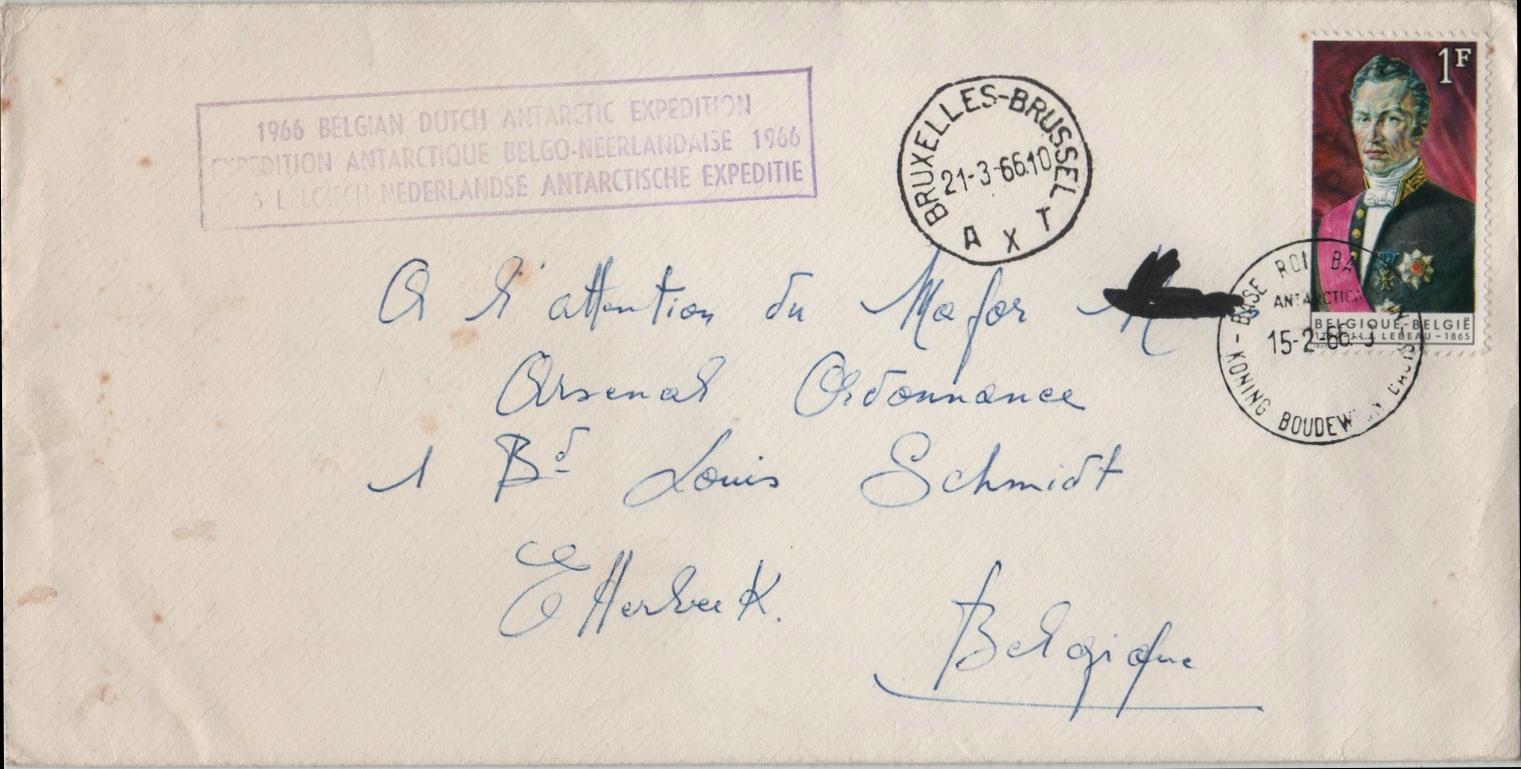 1966 BELGIAN DUTCH ANTARCTIC EXPEDITION
EXPEDITION ANTARCTIQUE BELGO-NEERLANDAISE 1966
NEDERLANDSE ANTARCTISCHE EXPEDITIE
BRUXELLES-BRUSSEL
21-3-66.10
A X T
1F
BELGIQUE-BELGIË
LEBEAU-1865
BASE ROI
ANTARCTIC
15-2-66
KONING
A l'attention du Major
Arsenal Ordonnance
1 Bd Louis Schmidt
Etterbeek.
Belgique